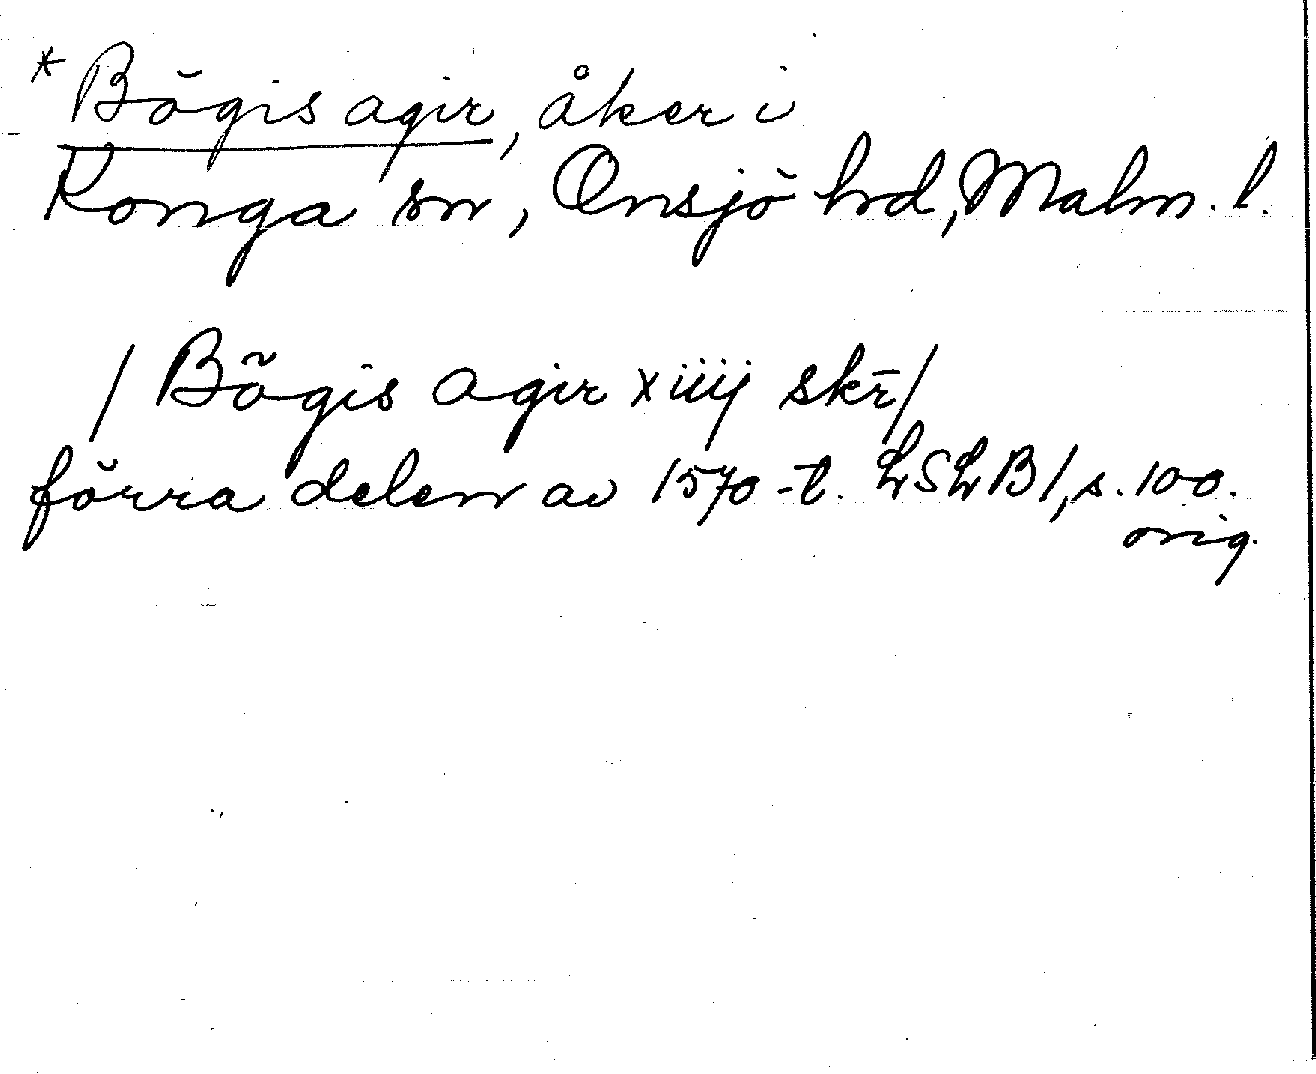 *Bögis agir, åker i
Konga sn, Onsjö hd, Malm. l.
/ Bögis agir xiiij skr̄ /
förra delen av 1570-t. LSLB 1, s. 100.
orig.